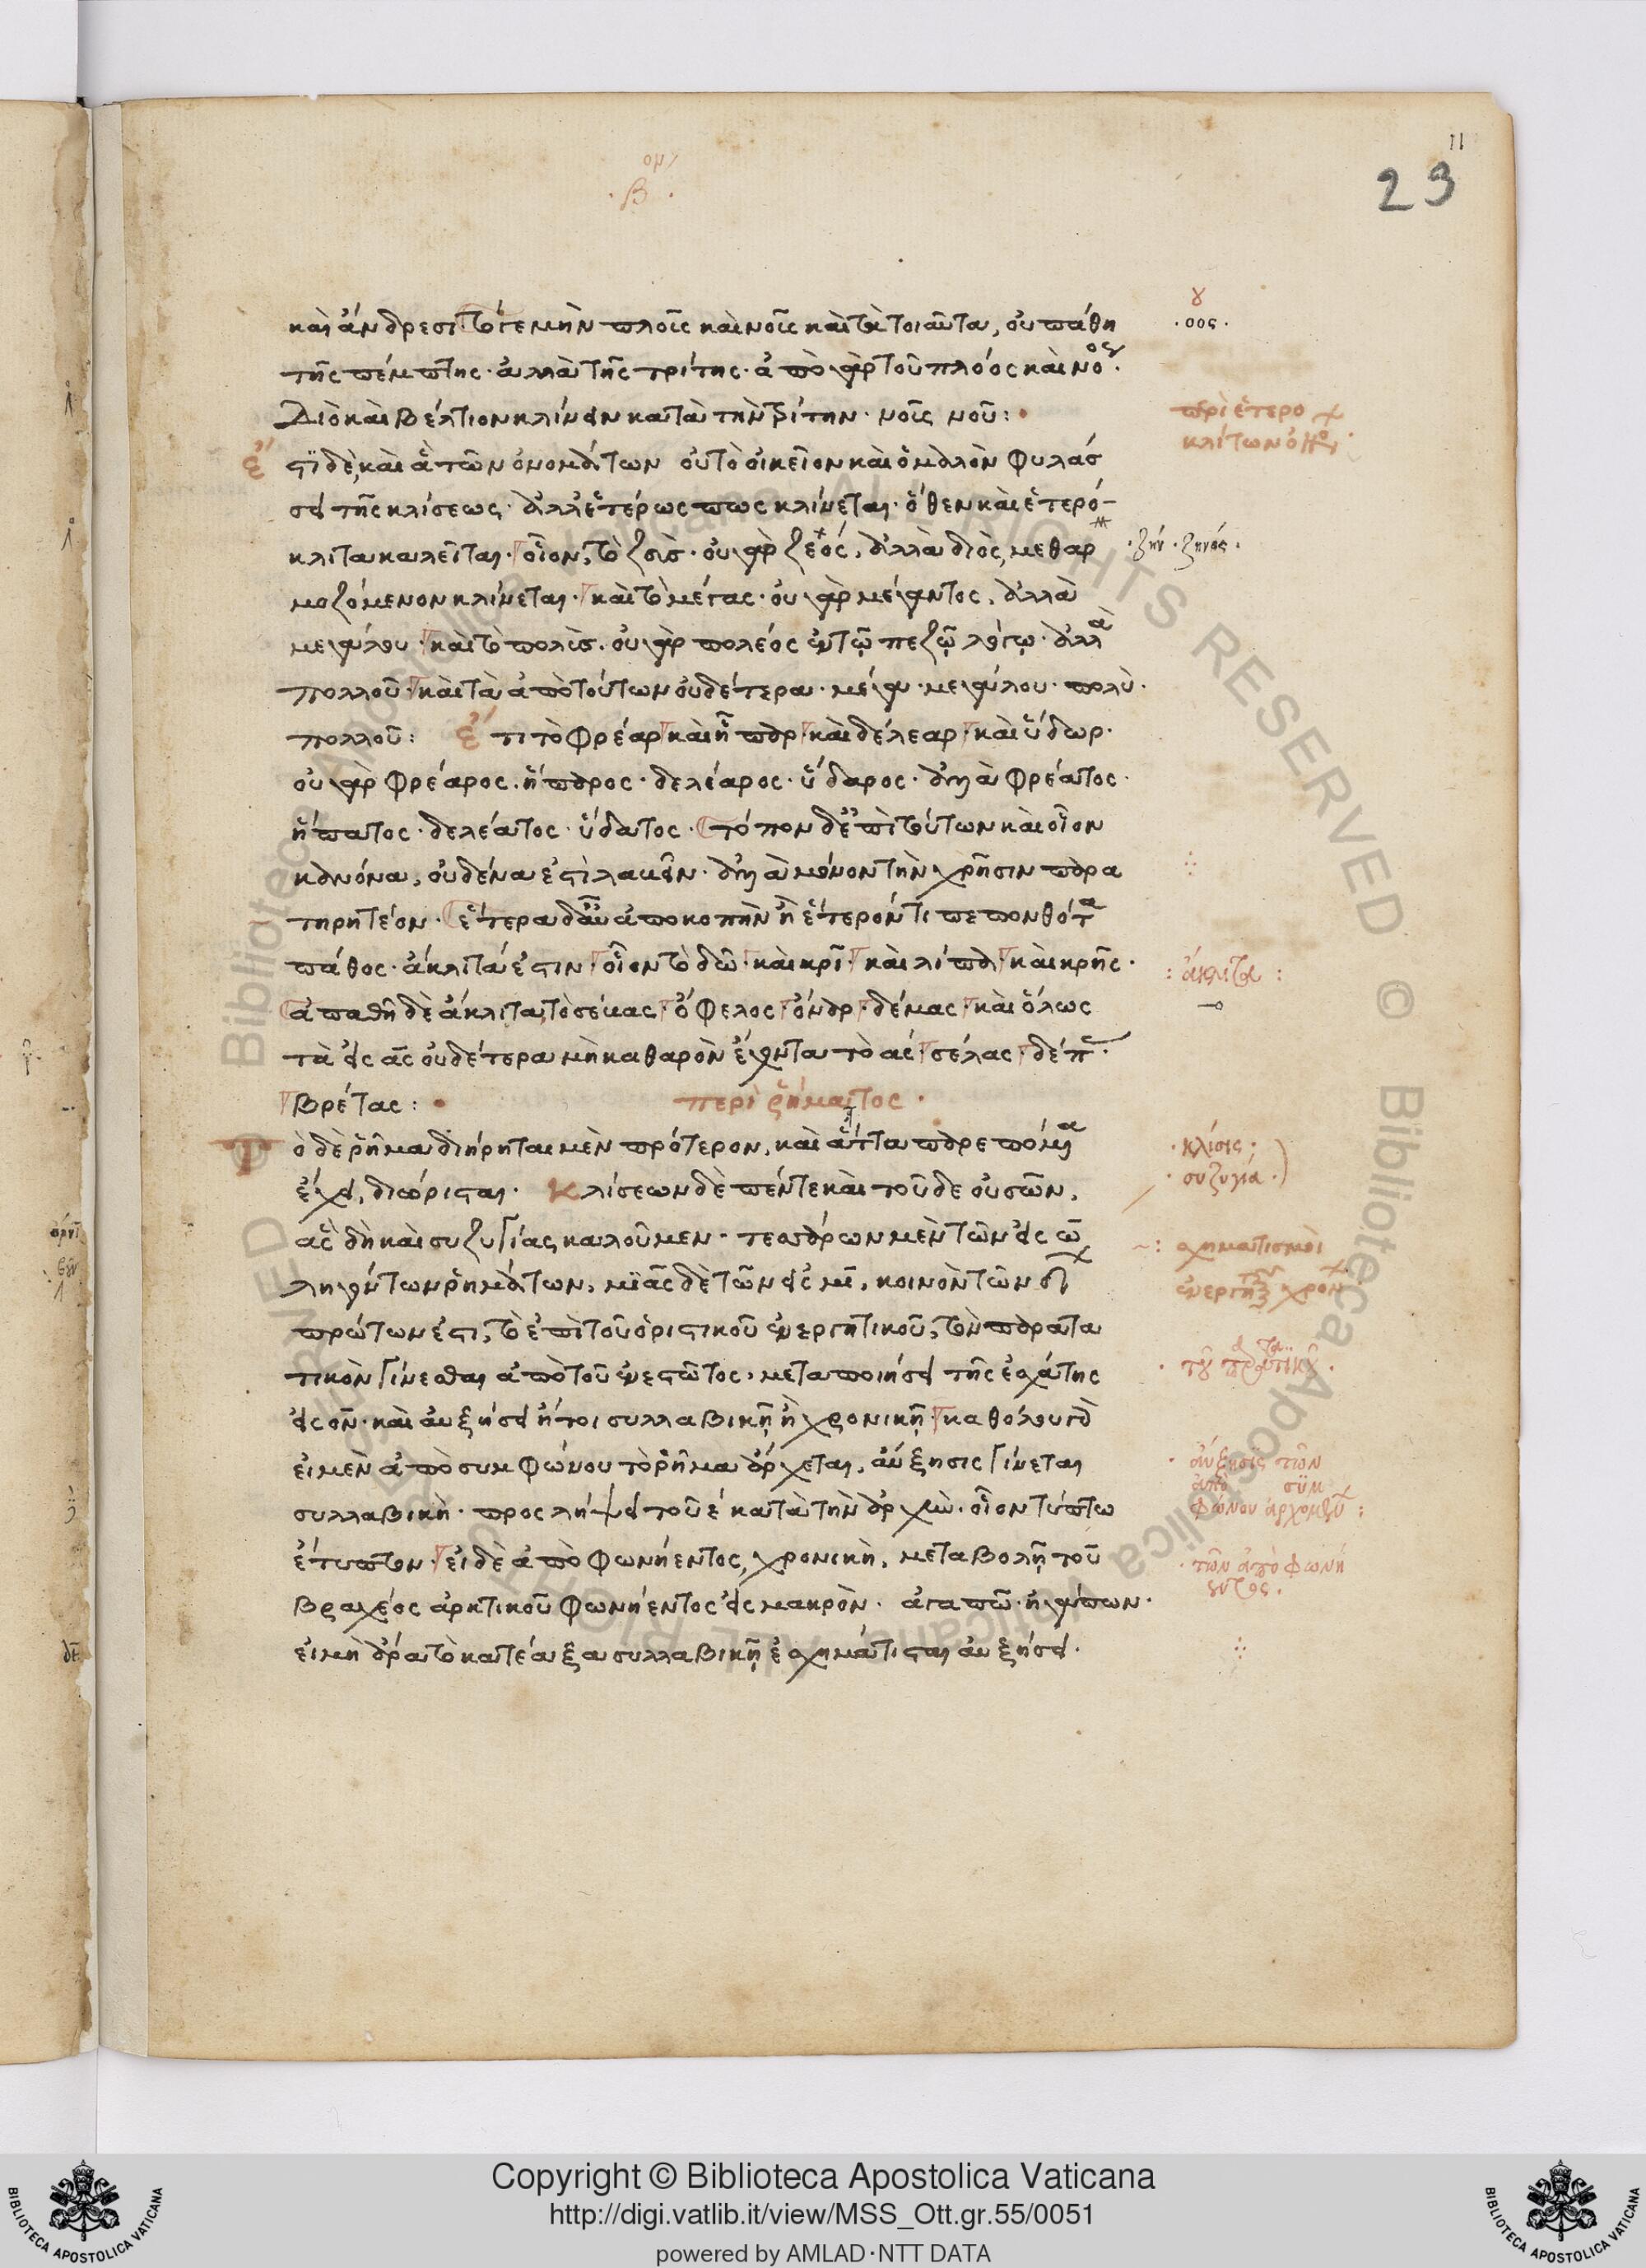 11
23
ομ/
·β·
καὶ ἀνδρέσι· τό γε μὴν πλοῖς καὶ νοῖς καὶ τὰ τοιαῦτα, οὐ πάθη
ου
·οος·
τῆς πέμπτης· ἀλλὰ τῆς τρίτης· ἀπὸ γὰρ τοῦ πλόος καὶ νόος·
Διὸ καὶ βέλτιον κλίνειν κατὰ τὴν τρίτην· νοῖς νοῦ:
περὶ ἑτερο
κλίτων
ἔστι δὲ, καὶ ἃ τῶν ὀνομάτων οὐ τὸ οἰκεῖον καὶ ὁμαλὸν φυλάσ
σει τῆς κλίσεως· ἀλλ' ἑτέρως πως κλίνεται· ὅθεν καὶ ἑτερό-
κλιτα καλεῖται· οἷον, τὸ ζεὺς· οὐ γὰρ ζεός, ἀλλὰ διὸς, μεθαρ
·ζήν·ζηνός·
μοζόμενον κλίνεται· καὶ τὸ μέγας· οὐ γὰρ μέγαντος, ἀλλὰ
μεγάλου· καὶ τὸ πολὺς· οὐ γὰρ πολέος ἐν τῷ πεζῷ λόγῳ· ἀλλὰ
πολλοῦ· καὶ τὰ ἀπὸ τούτων οὐδέτερα· μέγα· μεγάλου· πολὺ·
πολλοῦ: ἔτι τὸ φρέαρ· καὶ ἧπαρ· καὶ δέλεαρ· καὶ ὕδωρ·
οὐ γὰρ φρέαρος· ἥπαρος· δελέαρος· ὕδαρος· ἀλλὰ φρέατος·
ἥπατος· δελέατος· ὕδατος· τόπον δ' ἐπὶ τούτων καὶ οἷον
κανόνα, οὐδένα ἐστὶ λαβεῖν· ἀλλὰ μόνον τὴν χρῆσιν παρα
τηρητέον· ἕτερα δ' αὖ ἀποκοπὴν ἢ ἕτερόν τι πεπονθότα
πάθος· ἄκλιτά ἐστιν· οἷον τὸ δῶ· καὶ κρῖ· καὶ λίπα· καὶ κρῆς·
: ἄκλιτα :
ἀπαθῆ δὲ ἄκλιτα, τὸ σέβας· ὄφελος· ὄναρ· δέμας· καὶ ὅλως
τὰ εἰς ας οὐδέτερα μὴ καθαρὸν ἔχοντα τὸ ας· σέλας· δέπας·
βρέτας: περὶ ῥήματος·
Τὸ δὲ ῥῆμα διήρηται μὲν πρότερον, καὶ ἅττα παρεπόμενα
·κλίσις;
ἔχει, διώρισται· Κλίσεων δὲ πέντε καὶ τοῦδε οὐσῶν,
·συζυγία·
ἃς δὴ καὶ συζυγίας καλοῦμεν· τεσσάρων μὲν τῶν εἰς ω
: σχηματισμοὶ
ληγόντων ῥημάτων, μιᾶς δὲ τῶν εἰς μι, κοινὸν τῶν
πρώτων ἐστι, τὸ ἐπὶ τοῦ ὁριστικοῦ ἐνεργητικοῦ, τὸν παρατα
τικὸν γίνεσθαι ἀπὸ τοῦ ἐνεστῶτος, μεταποιήσει τῆς ἐσχάτης
· τοῦ παρατατικοῦ·
εἰς ον· καὶ αὐξήσει ἤτοι συλλαβικῇ ἢ χρονικῇ· καθόλου γὰρ
εἰ μὲν ἀπὸ συμφώνου τὸ ῥῆμα ἄρχεται, αὔξησις γίνεται
· αὔξησις τῶν
ἀπὸ συμ
φώνου ἀρχομένων :
συλλαβικὴ· προσλήψει τοῦ ε κατὰ τὴν ἀρχὴν· οἷον τύπτω
ἔτυπτον· εἰ δὲ ἀπὸ φωνήεντος, χρονικὴ, μεταβολῇ τοῦ
· τῶν ἀπὸ φωνή
εντος·
βραχέος ἀρκτικοῦ φωνήεντος εἰς μακρὸν· ἀγαπῶ· ἠγάπων·
εἰ μὴ ἄρα τὸ κατέαξα συλλαβικῇ ἐσχημάτισται αὐξήσει·
Copyright © Biblioteca Apostolica Vaticana
http://digi.vatlib.it/view/MSS_Ott.gr.55/0051
powered by AMLAD·NTT DATA